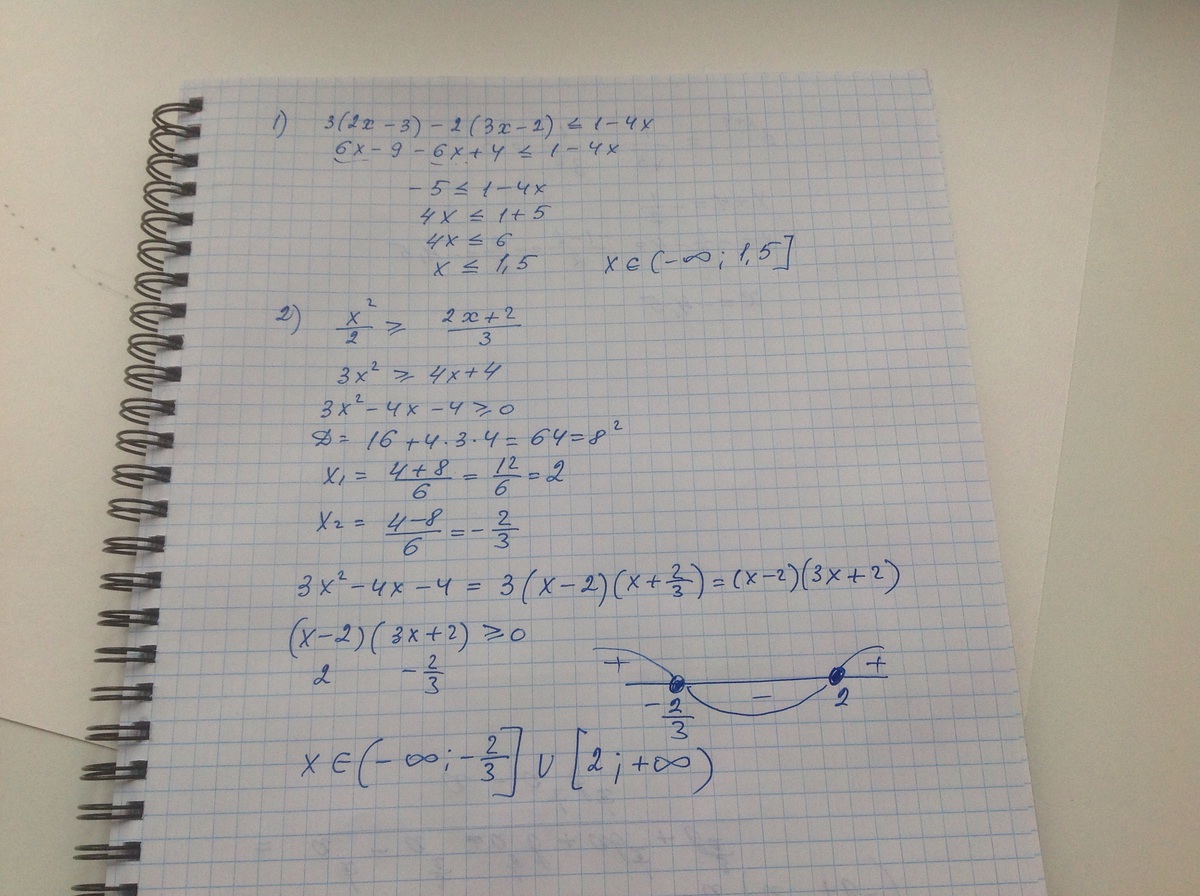 1) 3(2x-3)-2(3x-2) ≤ 1-4x
6x-9-6x+4 ≤ 1-4x
-5 ≤ 1-4x
4x ≤ 1+5
4x ≤ 6
x ≤ 1,5 x ∈ (-∞; 1,5]
2) x²/2 ⩾ (2x+2)/3
3x² ⩾ 4x+4
3x²-4x-4 ⩾ 0
D = 16+4·3·4 = 64 = 8²
x₁ = (4+8)/6 = 12/6 = 2
x₂ = (4-8)/6 = -2/3
3x²-4x-4 = 3(x-2)(x+2/3) = (x-2)(3x+2)
(x-2)(3x+2) ⩾ 0
2 -2/3
+ - +
-2/3 2
x ∈ (-∞; -2/3] ∪ [2; +∞)